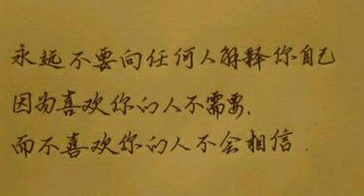 永远不要向任何人解释你自己
因为喜欢你的人不需要,
而不喜欢你的人不会相信.